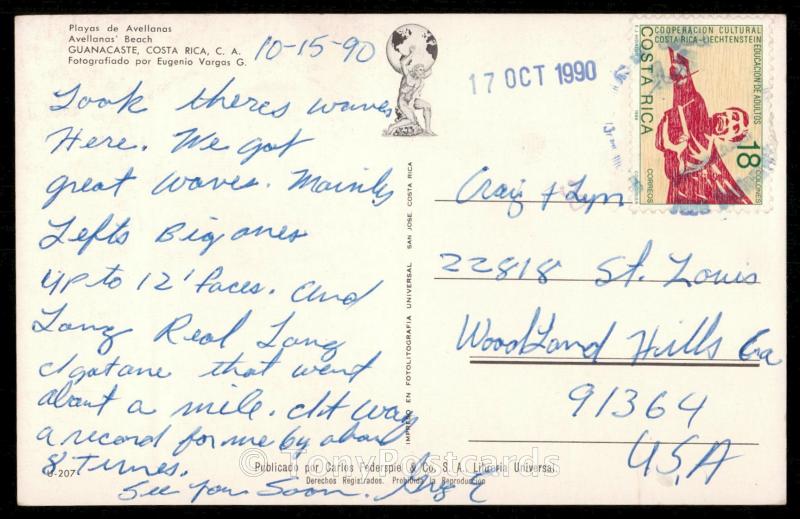 Playas de Avellanas
Avellanas' Beach
GUANACASTE, COSTA RICA, C. A.
Fotografiado por Eugenio Vargas G.
10-15-90
Look theres waves
Here. We got
great waves. Mainly
Lefts Big ones
up to 12' faces. And
Long Real Long
I got one that went
about a mile. It was
a record for me by about
8 Times.
See You Soon. Greg E
U-207
IMPRESO EN FOTOLITOGRAFIA UNIVERSAL SAN JOSE, COSTA RICA
17 OCT 1990
COOPERACION CULTURAL
COSTA RICA-LIECHTENSTEIN
EDUCACION DE ADULTOS
COSTA RICA
18
COLONES
CORREOS
Craig & Lyn
22818 St. Louis
Woodland Hills Ca
91364
U.S.A
Publicado por Carlos Federspiel & Co. S. A. Librería Universal
Derechos Registrados. Prohibida la Reproducción
© TonyPostcards